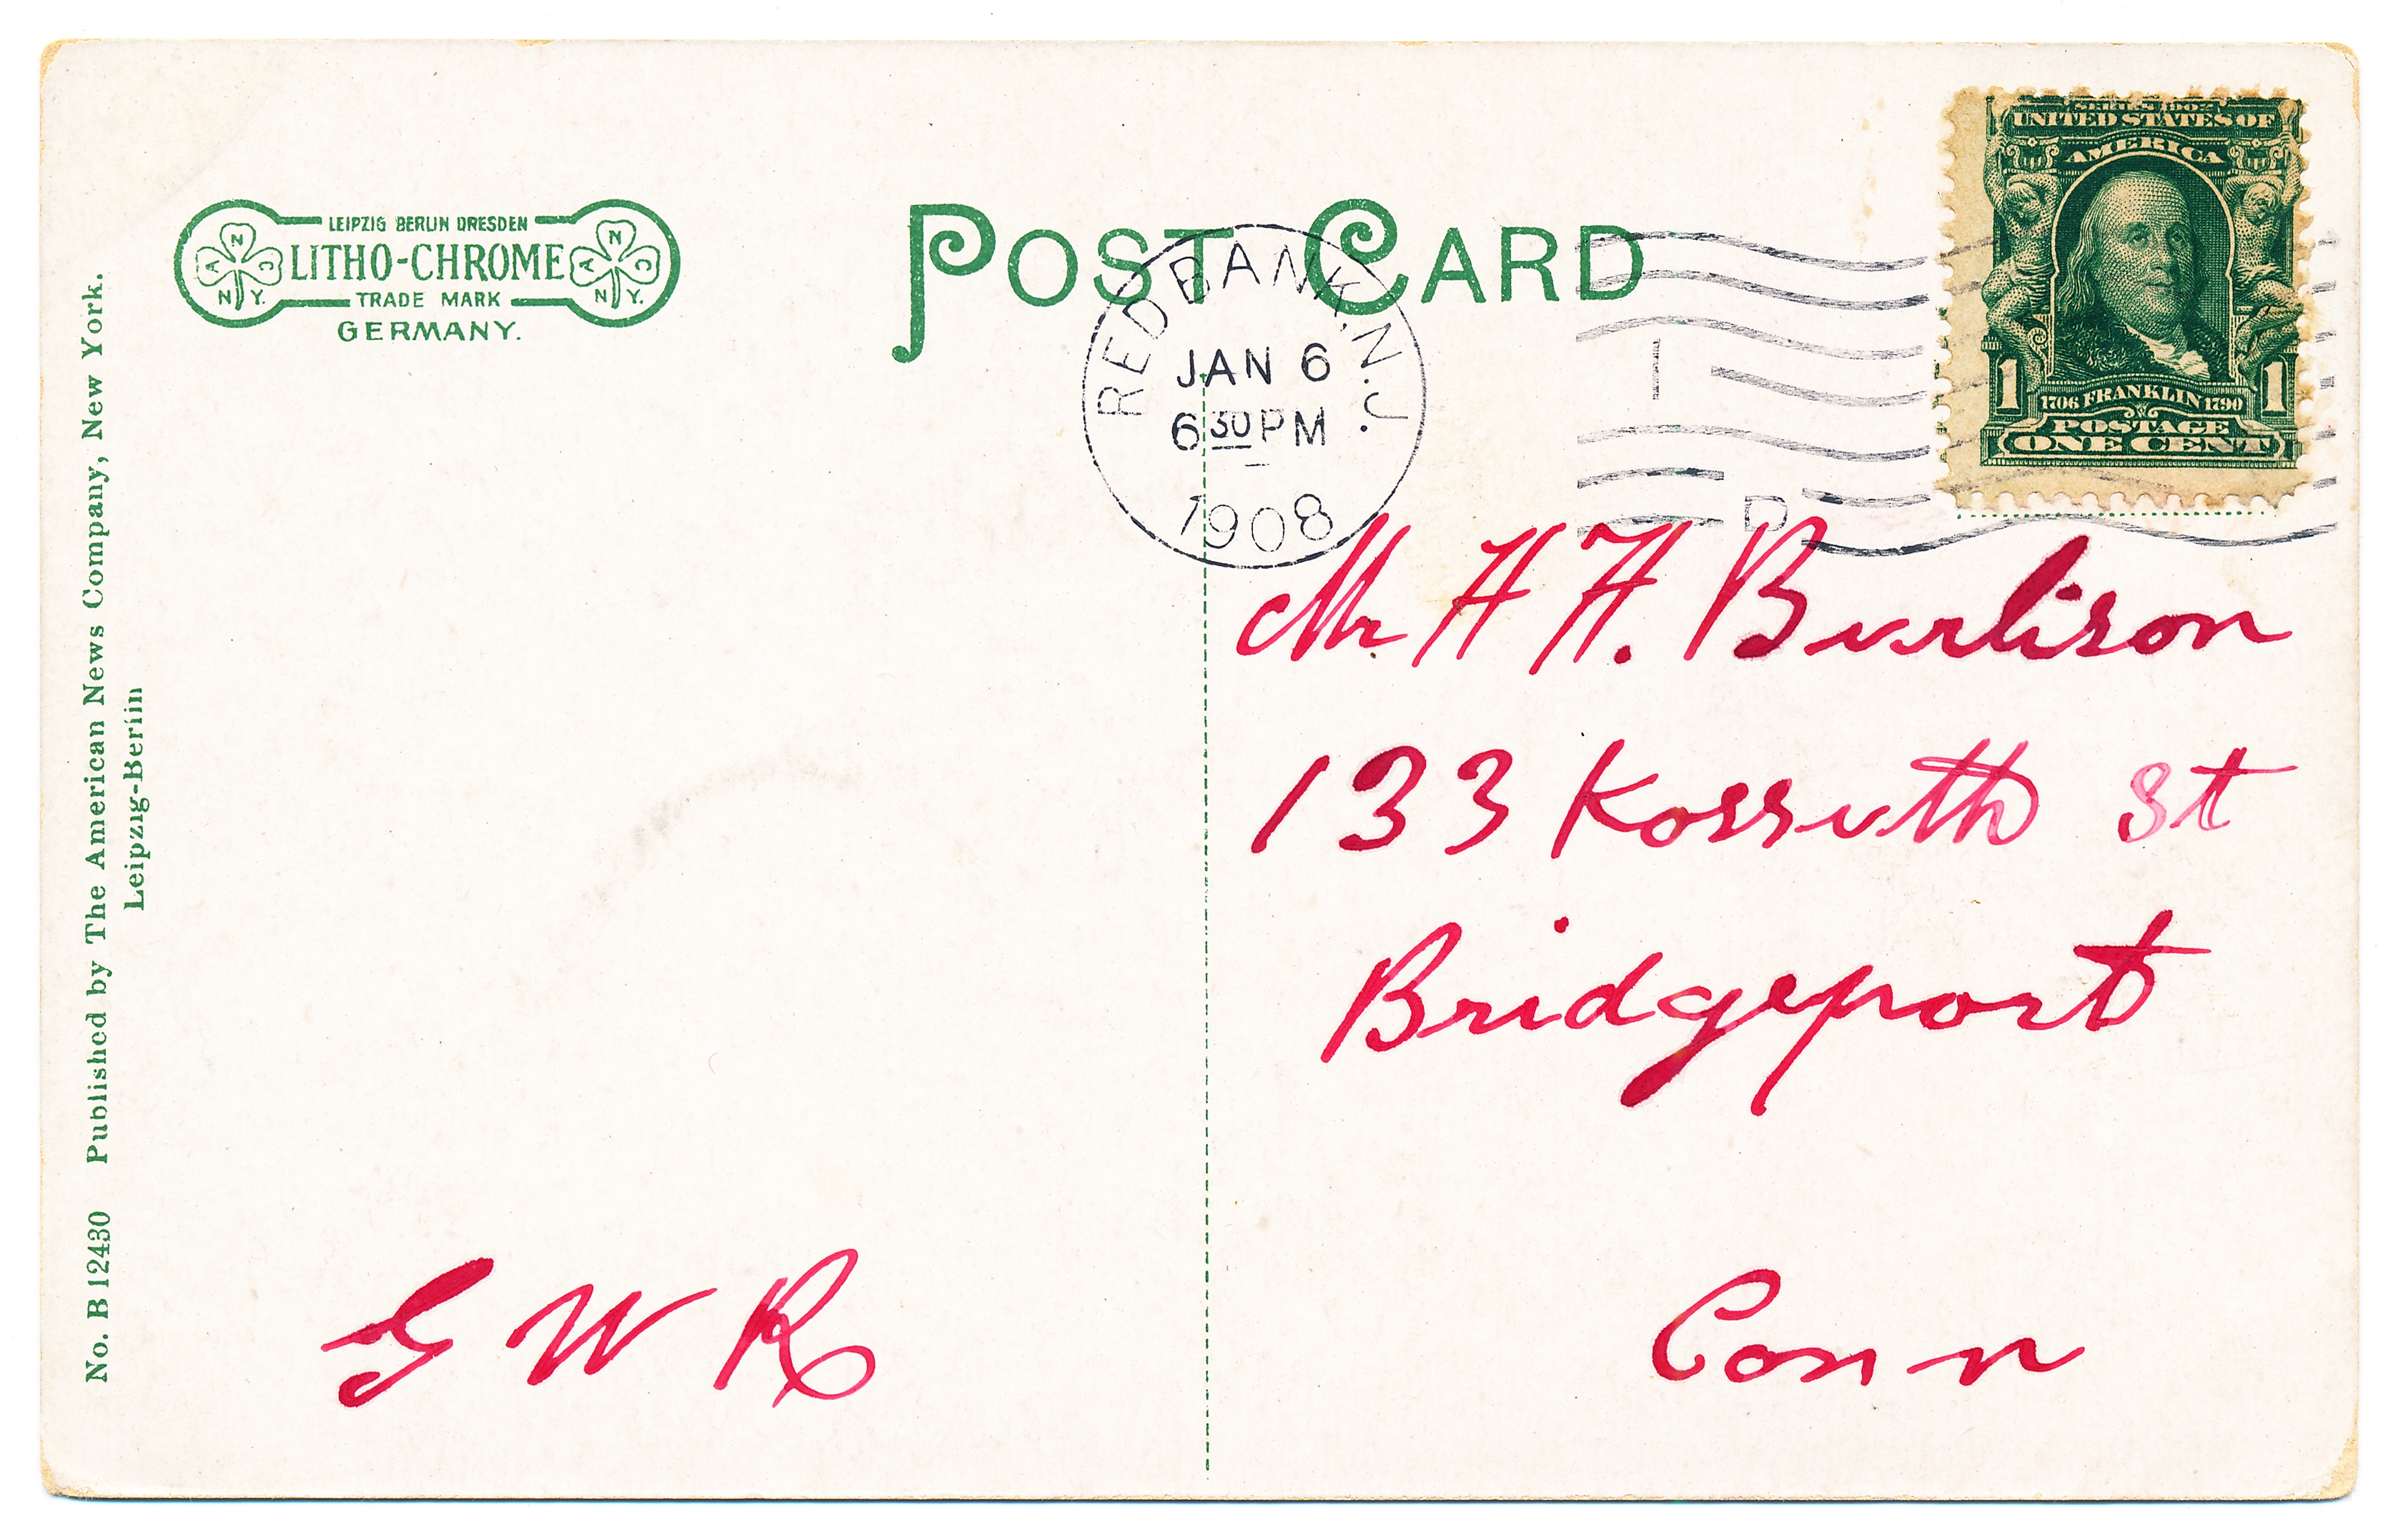 LEIPZIG BERLIN DRESDEN
LITHO-CHROME
TRADE MARK
GERMANY.
N
A C
N.Y.
N
A C
N.Y.
POST CARD
RED BANK, N.J.
JAN 6
6 30 PM
1908
1
D
SERIES 1902
UNITED STATES OF
AMERICA
1 1706 FRANKLIN 1790 1
POSTAGE
ONE CENT
Mr H H. Burlison
133 Kossuth St
Bridgeport
Conn
G W R
No. B 12430 Published by The American News Company, New York.
Leipzig-Berlin